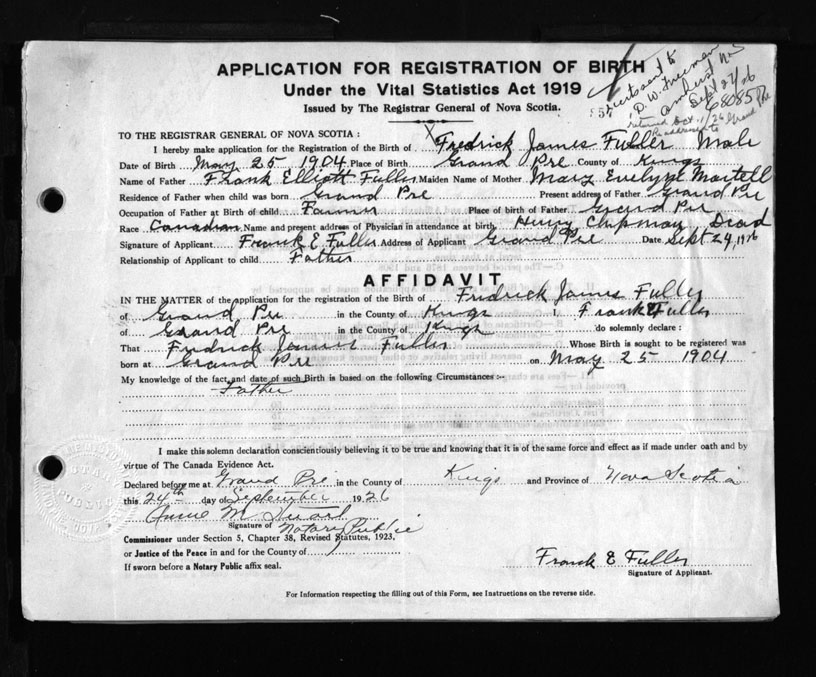 APPLICATION FOR REGISTRATION OF BIRTH
Under the Vital Statistics Act 1919
Issued by The Registrar General of Nova Scotia.
sent to
D. W. Freeman
Amherst NS
Sept 27/26
68085
returned Oct. 1/26 Grand Pre
TO THE REGISTRAR GENERAL OF NOVA SCOTIA :
I hereby make application for the Registration of the Birth of Fredrick James Fuller Male
Date of Birth May 25 1904 Place of Birth Grand Pre County of Kings
Name of Father Frank Elliott Fuller Maiden Name of Mother Mary Evelyn Martell
Residence of Father when child was born Grand Pre Present address of Father Grand Pre
Occupation of Father at Birth of child Farmer Place of birth of Father Grand Pre
Race Canadian Name and present address of Physician in attendance at birth Henry Chipman Dead
Signature of Applicant Frank E Fuller Address of Applicant Grand Pre Date Sept 24 1926
Relationship of Applicant to child Father
AFFIDAVIT
IN THE MATTER of the application for the registration of the Birth of Fredrick James Fuller
of Grand Pre in the County of Kings I, Frank E Fuller
of Grand Pre in the County of Kings do solemnly declare :
That Fredrick James Fuller Whose Birth is sought to be registered was
born at Grand Pre on May 25 1904
My knowledge of the fact and date of such Birth is based on the following Circumstances :—
Father
I make this solemn declaration conscientiously believing it to be true and knowing that it is of the same force and effect as if made under oath and by
virtue of The Canada Evidence Act.
Declared before me at Grand Pre in the County of Kings and Province of Nova Scotia
this 24th day of September 1926
Annie M Stuart
Signature of Notary Public
Commissioner under Section 5, Chapter 38, Revised Statutes, 1923,
or Justice of the Peace in and for the County of
If sworn before a Notary Public affix seal.
Frank E Fuller
Signature of Applicant.
For Information respecting the filling out of this Form, see Instructions on the reverse side.